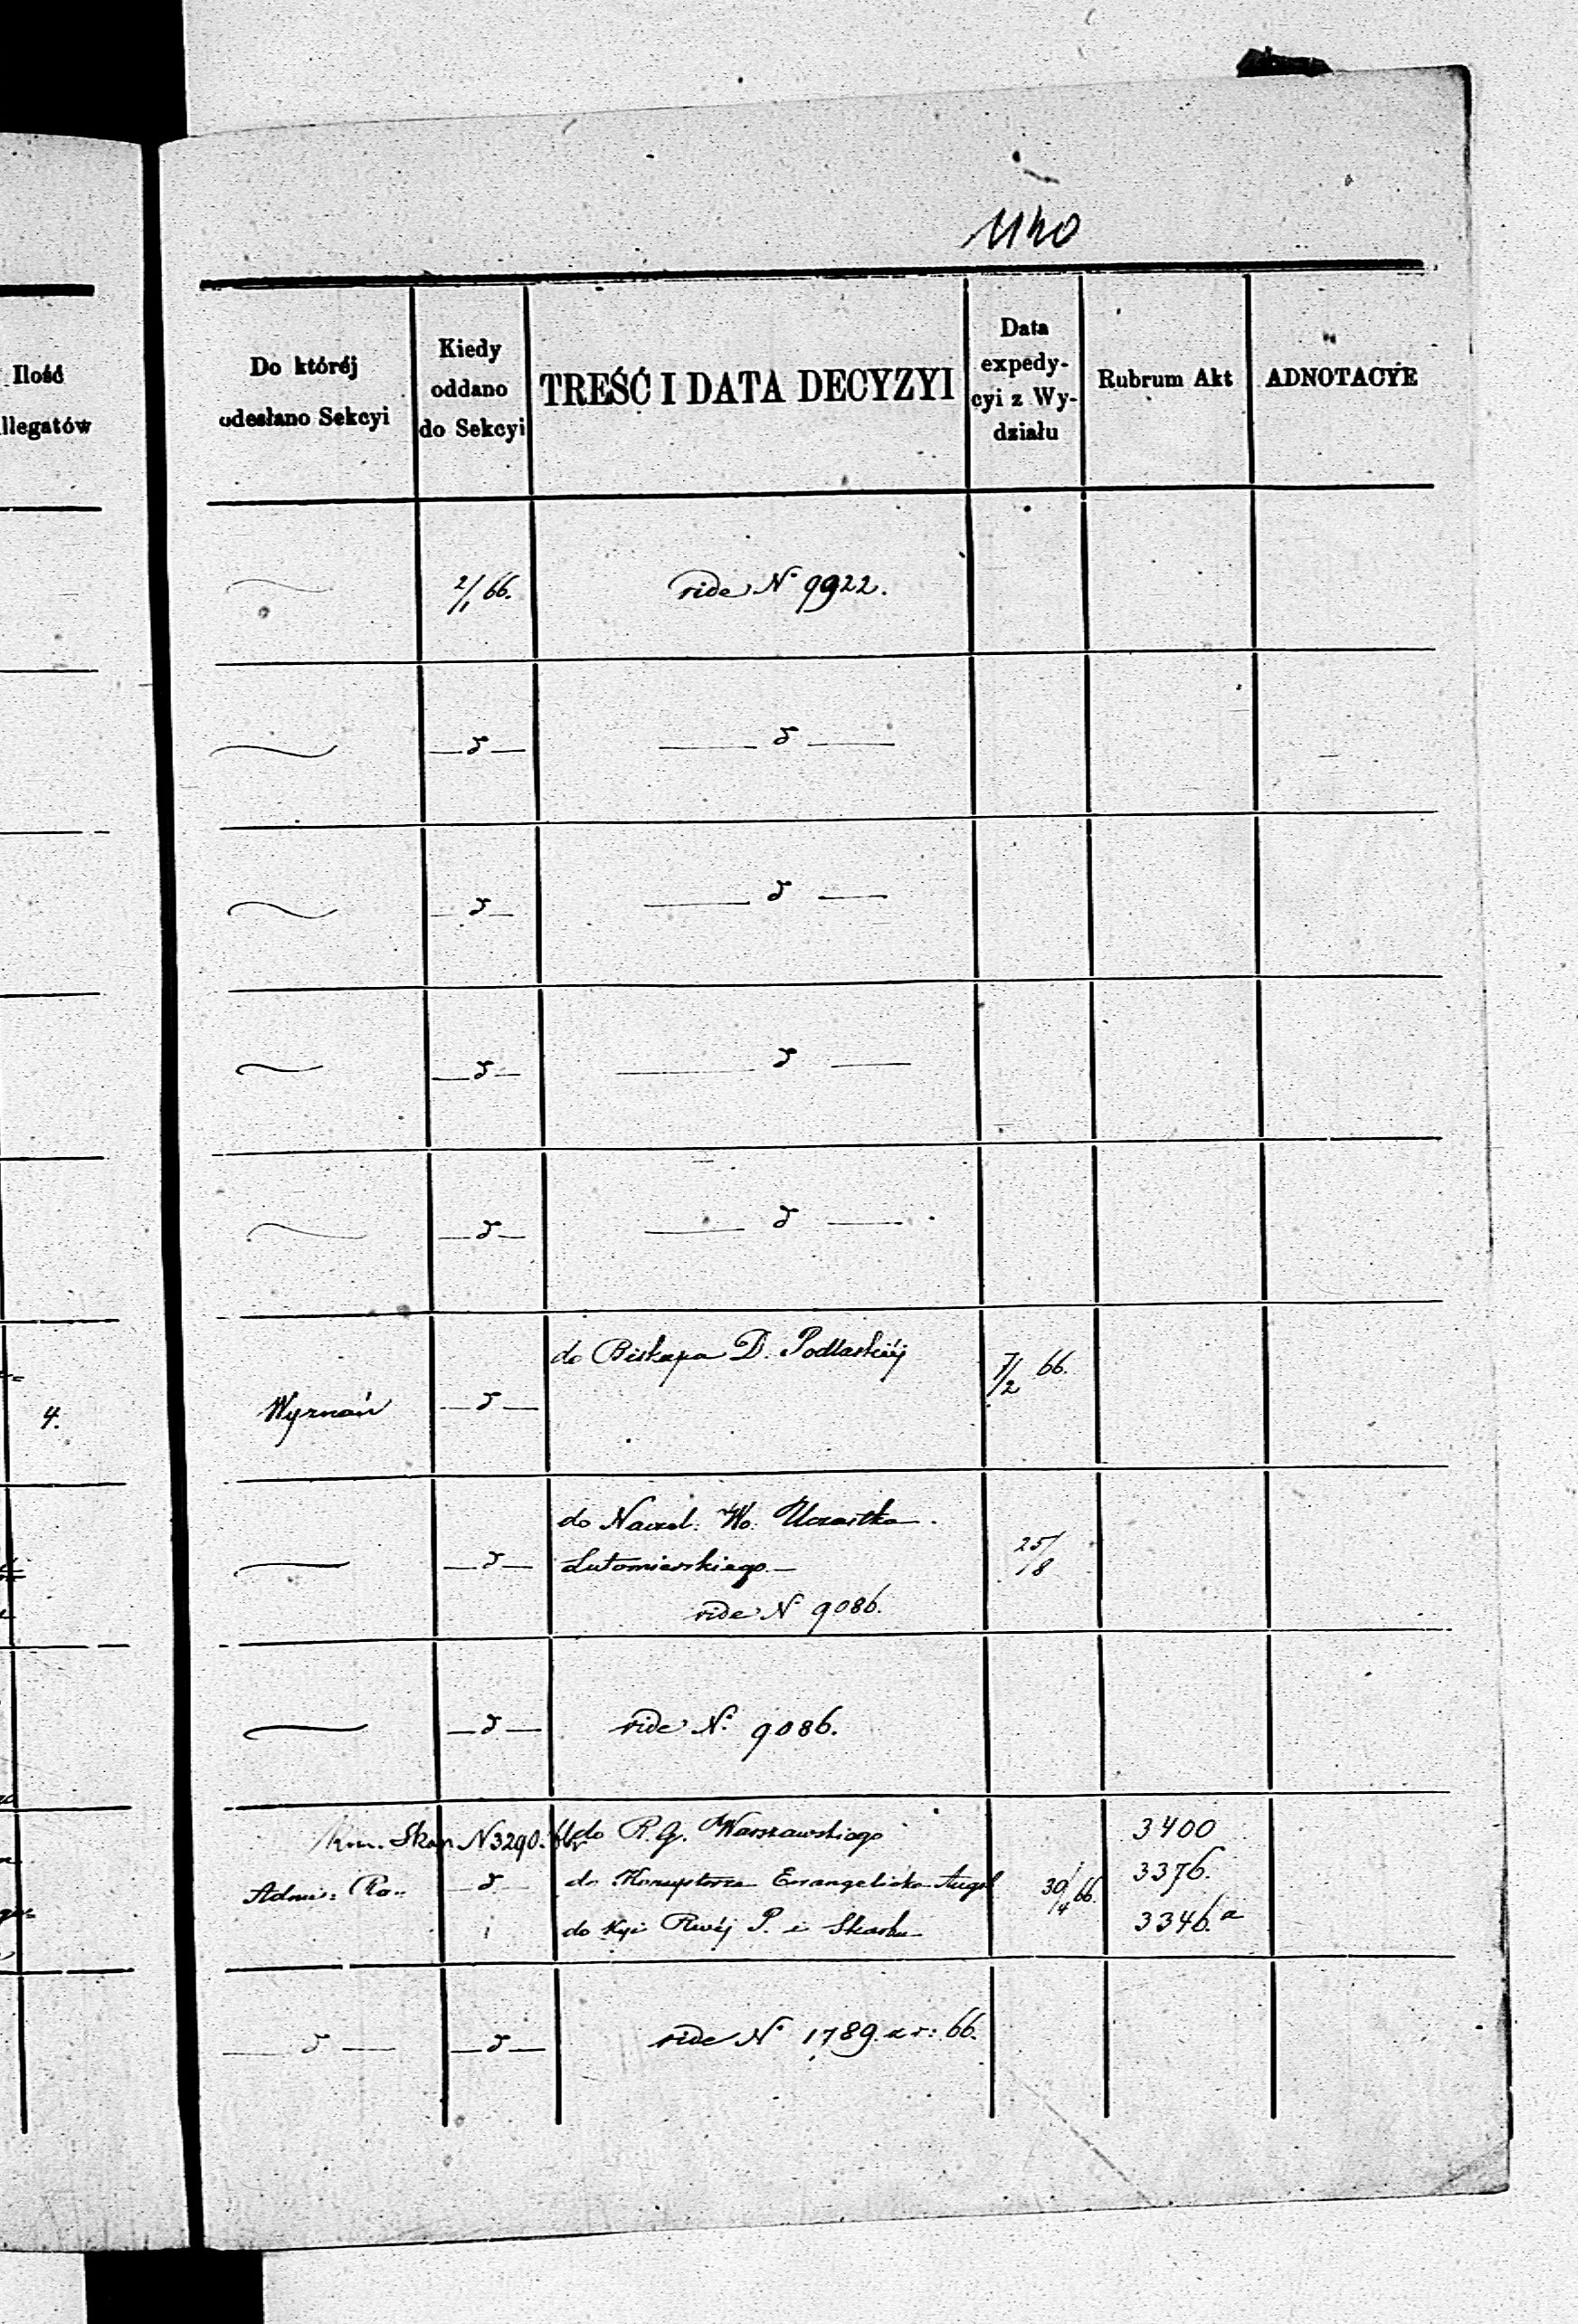 1140
Ilość
llegatów
Do któréj
odesłano Sekcyi
Kiedy
oddano
do Sekcyi
TREŚĆ I DATA DECYZYI
Data
expedy-
cyi z Wy-
działu
Rubrum Akt
ADNOTACYE
2/1 66.
vide N° 9922.
— d —
— d —
— d —
— d —
— d —
— d —
— d —
— d —
4.
Wyznań
— d —
do Biskupa D. Podlaskiéj
7/2 66.
— d —
do Naczel: Wo:
Lutomierskiego —
vide N° 9086.
25/8
— d —
vide N° 9086.
N 3290.
do R. G. Warszawskiego
3400
— d —
do Konsystorza Ewangelicko Augsb
30/4 66.
3376.
do Kyi Rwéj P. i Skarbu
3346.a
— d —
— d —
vide N° 1789. z r: 66.